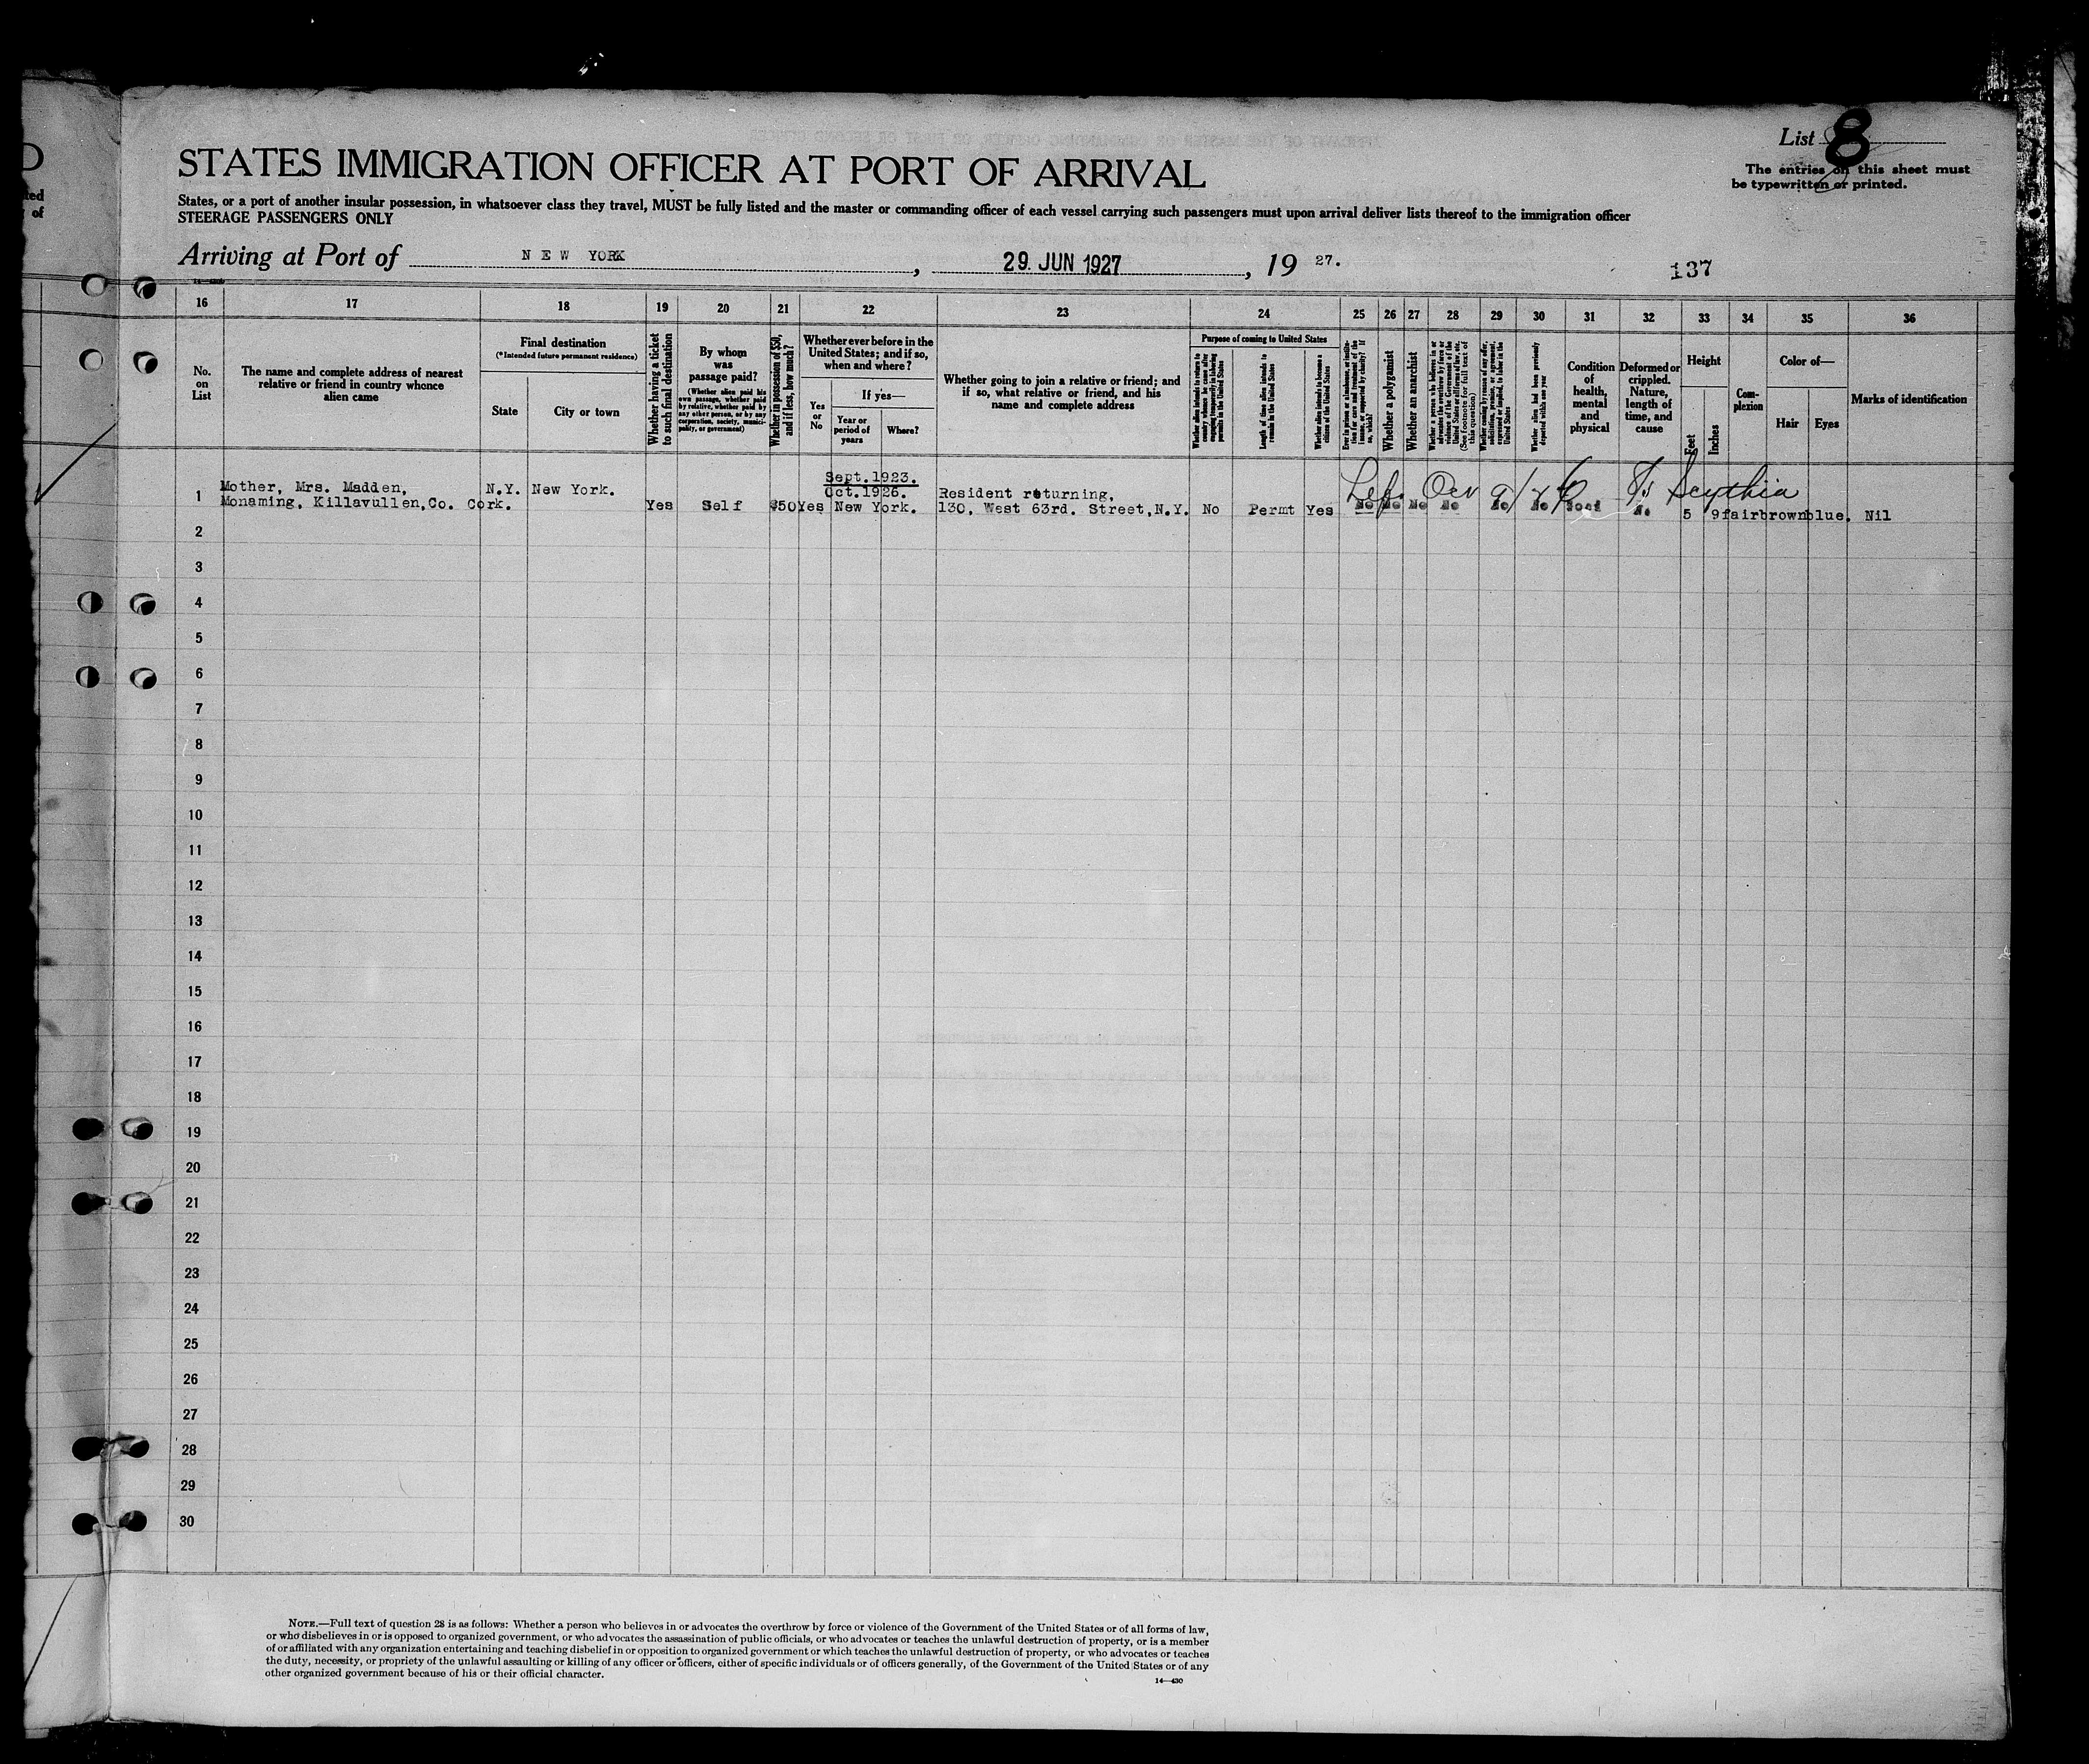 D
ted
of
List 8
The entries on this sheet must
be typewritten or printed.
STATES IMMIGRATION OFFICER AT PORT OF ARRIVAL
States, or a port of another insular possession, in whatsoever class they travel, MUST be fully listed and the master or commanding officer of each vessel carrying such passengers must upon arrival deliver lists thereof to the immigration officer
STEERAGE PASSENGERS ONLY
Arriving at Port of NEW YORK, 29. JUN 1927, 19 27.
137
16 17 18 19 20 21 22 23 24 25 26 27 28 29 30 31 32 33 34 35 36
No.
on
List
The name and complete address of nearest
relative or friend in country whence
alien came
Final destination
(*Intended future permanent residence)
State
City or town
Whether having a ticket
to such final destination
By whom
was
passage paid?
(Whether alien paid his
own passage, whether paid
by relative, whether paid by
any other person, or by any
corporation, society, munici-
pality, or government)
Whether in possession of $50,
and if less, how much?
Whether ever before in the
United States; and if so,
when and where?
Yes
or
No
If yes—
Year or
period of
years
Where?
Whether going to join a relative or friend; and
if so, what relative or friend, and his
name and complete address
Purpose of coming to United States
Whether alien intends to return to
country whence he came after
engaging temporarily in laboring
pursuits in the United States
Length of time alien intends to
remain in the United States
Whether alien intends to become a
citizen of the United States
Whether a polygamist
Whether an anarchist
(See footnote for full text of
this question)
Whether alien had been previously
deported within one year
Condition
of
health,
mental
and
physical
Deformed or
crippled.
Nature,
length of
time, and
cause
Height
Feet
Inches
Com-
plexion
Color of—
Hair
Eyes
Marks of identification
Sept.1923.
Lef. Oct 9/26 Ss Scythia
1 Mother, Mrs. Madden, N.Y. New York. Oct.1926. Resident returning,
Monaming, Killavullen,Co. Cork. Yes Self $50 Yes New York. 130, West 63rd. Street,N.Y. No Permt Yes No No No No No No Good No 5 9 fair brown blue. Nil
2
3
4
5
6
7
8
9
10
11
12
13
14
15
16
17
18
19
20
21
22
23
24
25
26
27
28
29
30
NOTE.—Full text of question 28 is as follows: Whether a person who believes in or advocates the overthrow by force or violence of the Government of the United States or of all forms of law,
or who disbelieves in or is opposed to organized government, or who advocates the assassination of public officials, or who advocates or teaches the unlawful destruction of property, or is a member
of or affiliated with any organization entertaining and teaching disbelief in or opposition to organized government or which teaches the unlawful destruction of property, or who advocates or teaches
the duty, necessity, or propriety of the unlawful assaulting or killing of any officer or officers, either of specific individuals or of officers generally, of the Government of the United States or of any
other organized government because of his or their official character.
14—430